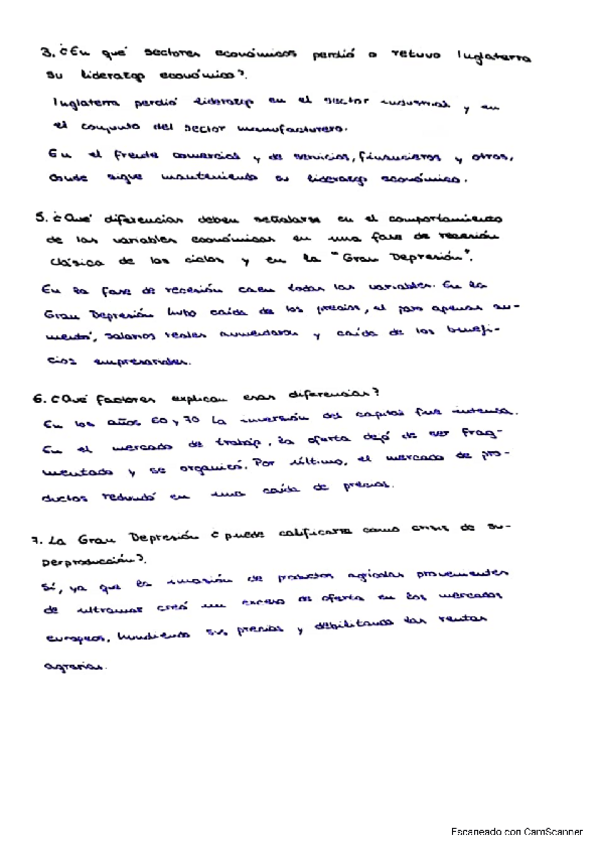 3. ¿En qué sectores económicos perdió o retuvo Inglaterra
su liderazgo económico?.
Inglaterra perdió liderazgo en el sector industrial y en
el conjunto del sector manufacturero.
En el frente comercial y de servicios, financieros y otros,
sigue manteniendo su liderazgo económico.
5. ¿Qué diferencias deben señalarse en el comportamiento
de las variables económicas en una fase de recesión
clásica de los ciclos y en la "Gran Depresión".
En la fase de recesión caen todas las variables. En la
Gran Depresión hubo caída de los precios, el paro apenas au-
mentó, salarios reales aumentaron y caída de los benefi-
cios empresariales.
6. ¿Qué factores explican esas diferencias?
En los años 60 y 70 la inversión del capital fue intensa.
En el mercado de trabajo, la oferta dejó de ser frag-
mentada y se organizó. Por último, el mercado de pro-
ductos redundó en una caída de precios.
7. La Gran Depresión ¿puede calificarse como crisis de su-
perproducción?.
Sí, ya que la invasión de productos agrícolas provenientes
de ultramar creó un exceso de oferta en los mercados
europeos, hundiendo sus precios y debilitando las rentas
agrarias.
Escaneado con CamScanner